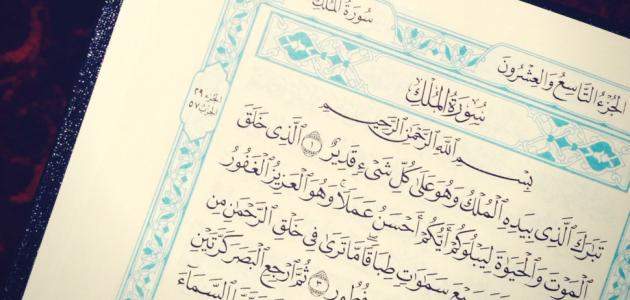 سُورَةُ المُلْكِ
الجُزْءُ التَّاسِعُ وَالعِشْرُونَ
الجُزْءُ ٢٩
الحِزْبُ ٥٧
سُورَةُ المُلْكِ
بِسْمِ ٱللَّهِ ٱلرَّحْمَٰنِ ٱلرَّحِيمِ
تَبَٰرَكَ ٱلَّذِي بِيَدِهِ ٱلْمُلْكُ وَهُوَ عَلَىٰ كُلِّ شَيْءٍ قَدِيرٌ ١ ٱلَّذِي خَلَقَ
ٱلْمَوْتَ وَٱلْحَيَوٰةَ لِيَبْلُوَكُمْ أَيُّكُمْ أَحْسَنُ عَمَلًا ۚ وَهُوَ ٱلْعَزِيزُ ٱلْغَفُورُ
سَبْعَ سَمَٰوَٰتٍ طِبَاقًا ۖ مَّا تَرَىٰ فِي خَلْقِ ٱلرَّحْمَٰنِ مِن
فُطُورٍ ٣ ثُمَّ ٱرْجِعِ ٱلْبَصَرَ كَرَّتَيْنِ
ٱلسَّمَآءَ